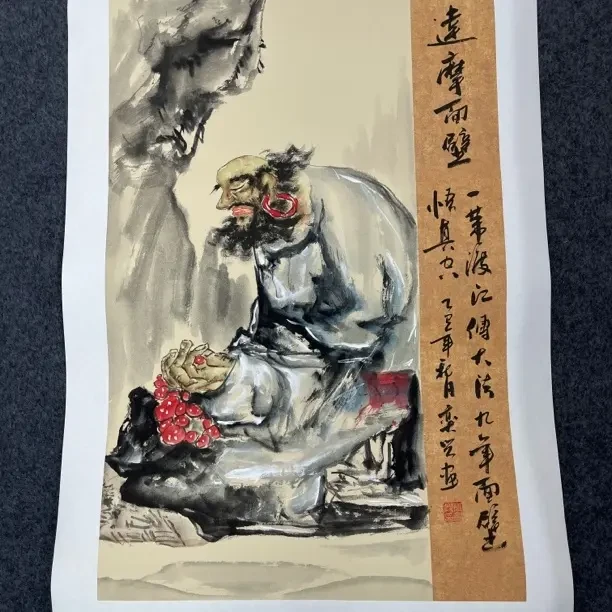 達摩面壁
一葦渡江傳大法九年面壁
悟真空 乙丑年月画